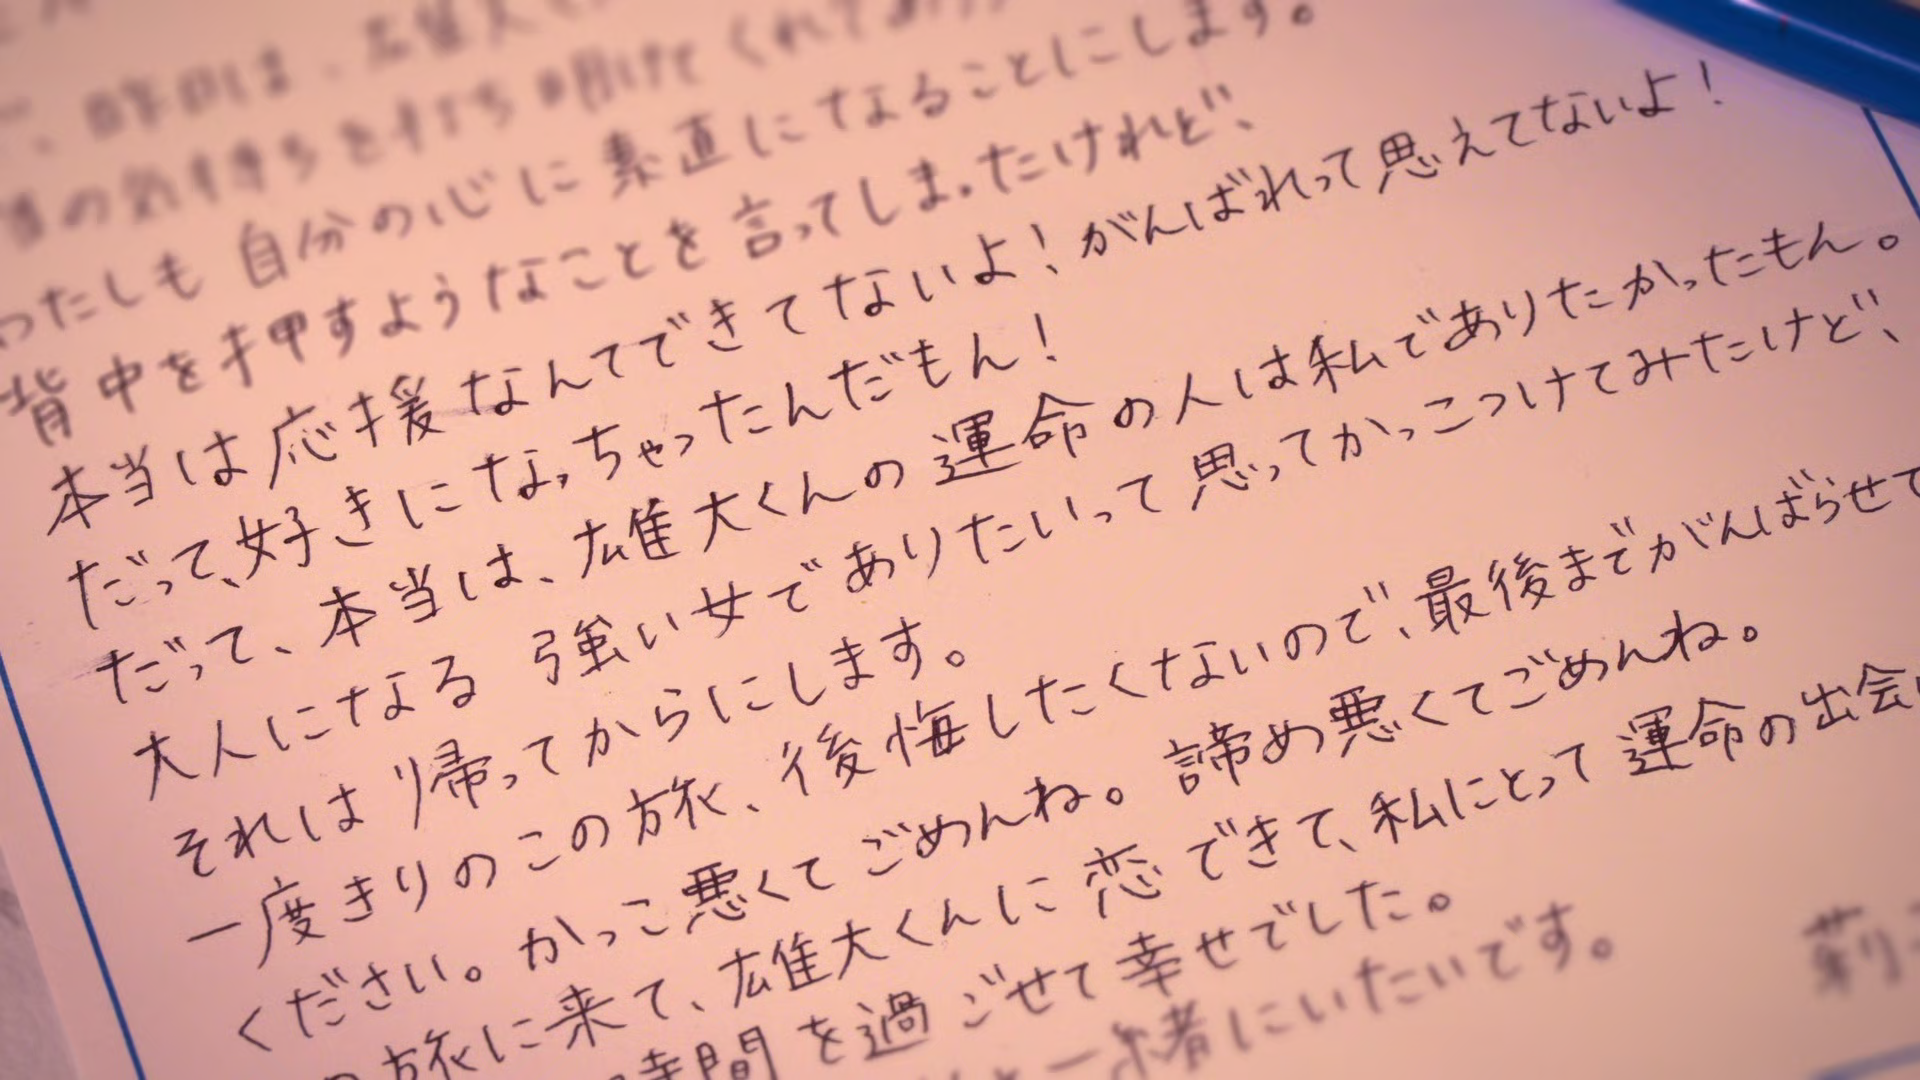 昨日は、雄大く
の気持ちを打ち明けてくれてあり
わたしも自分の心に素直になることにします。
背中を押すようなことを言ってしまったけれど、
本当は応援なんてできてないよ！がんばれって思えてないよ！
だって、好きになっちゃったんだもん！
だって、本当は、雄大くんの運命の人は私でありたかったもん。
大人になる強い女でありたいって思ってかっこつけてみたけど、
それは帰ってからにします。
一度きりのこの旅、後悔したくないので、最後までがんばらせて
ください。かっこ悪くてごめんね。諦め悪くてごめんね。
旅に来て、雄大くんに恋できて、私にとって運命の出会い
時間を過ごせて幸せでした。
と一緒にいたいです。
莉